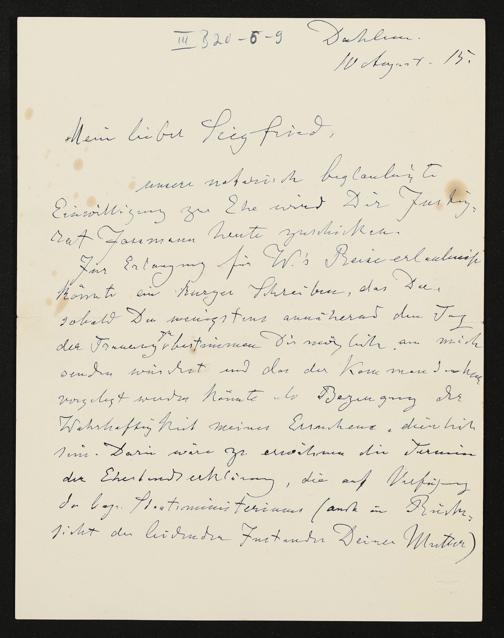 III B20-6-9
Dahlem.
10 August. 15.
Mein lieber Siegfried,
unsere notariell beglaubigte
Einwilligung zur Ehe wird Dir Justiz-
rat Jassmann heute zuschicken.
Zur Erlangung für W.'s Reiseerlaubniß
könnte ein kurzer Schreiben, das Du,
sobald Du wenigstens annähernd den Tag
der Trauung zu bestimmen Dir möglich, an mich
senden würdest und das der Kommandantur
vorgelegt werden könnte als Bezeugung der
Wahrhaftigkeit meines Ersuchens, dienlich
sein. Darin wäre zu erwähnen die Termin
der Ehestandserklärung, die auf Verfügung
des bay. Staatsministeriums (auch in Rück-
sicht des leidenden Zustandes Deiner Mutter)